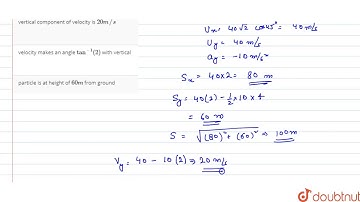 vertical component of velocity is 20m/s
velocity makes an angle tan⁻¹(2) with vertical
particle is at height of 60m from ground
Vx = 40√2 cos45° = 40 m/s
Uy = 40 m/s
ay = -10 m/s²
Sx = 40×2 = 80 m
Sy = 40(2) - 1/2 × 10 × 4
= 60 m
S = √(80)² + (60)² ⇒ 100m
Vy = 40 - 10(2) ⇒ 20 m/s
doubtnut